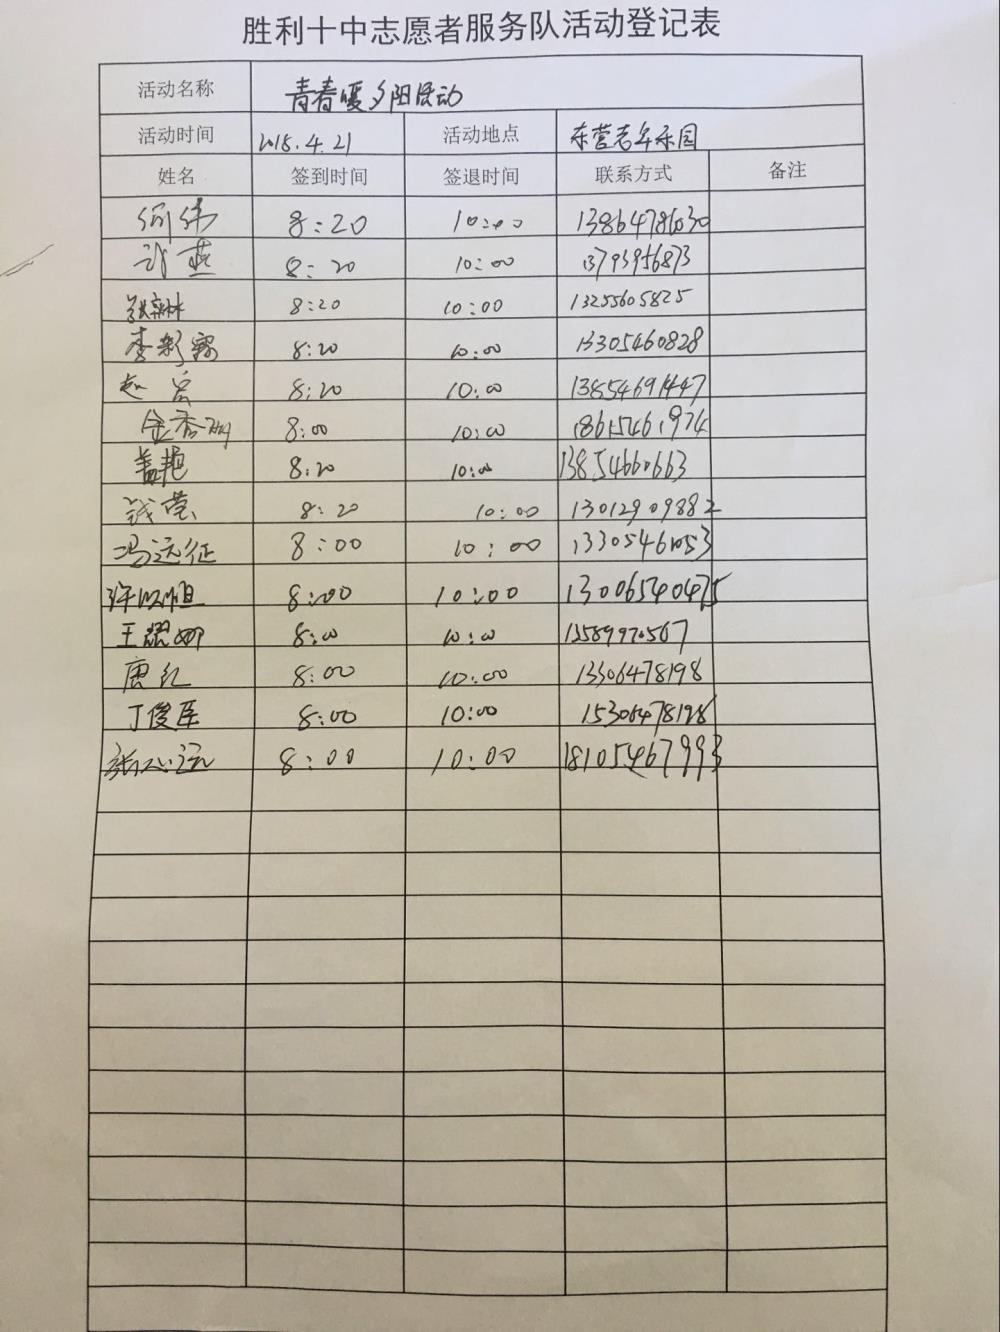 胜利十中志愿者服务队活动登记表
活动名称 青春暖夕阳活动
活动时间 2018.4.21 活动地点 东营老年乐园
姓名 签到时间 签退时间 联系方式 备注
何伟 8:20 10:00 13864786030
许燕 8:20 10:00 13793956873
8:20 10:00 13255605825
李彩霞 8:20 10:00 13305460828
赵 8:20 10:00 13854691447
金秀 8:00 10:00 18615461974
盖艳 8:20 10:00 13854660663
钱莹 8:20 10:00 13012909882
冯远征 8:00 10:00 13305461053
许 8:00 10:00 13006540475
王耀卿 8:00 10:00 13589970567
唐红 8:00 10:00 13306478198
丁俊臣 8:00 10:00 15306478198
张 8:00 10:00 18105467993